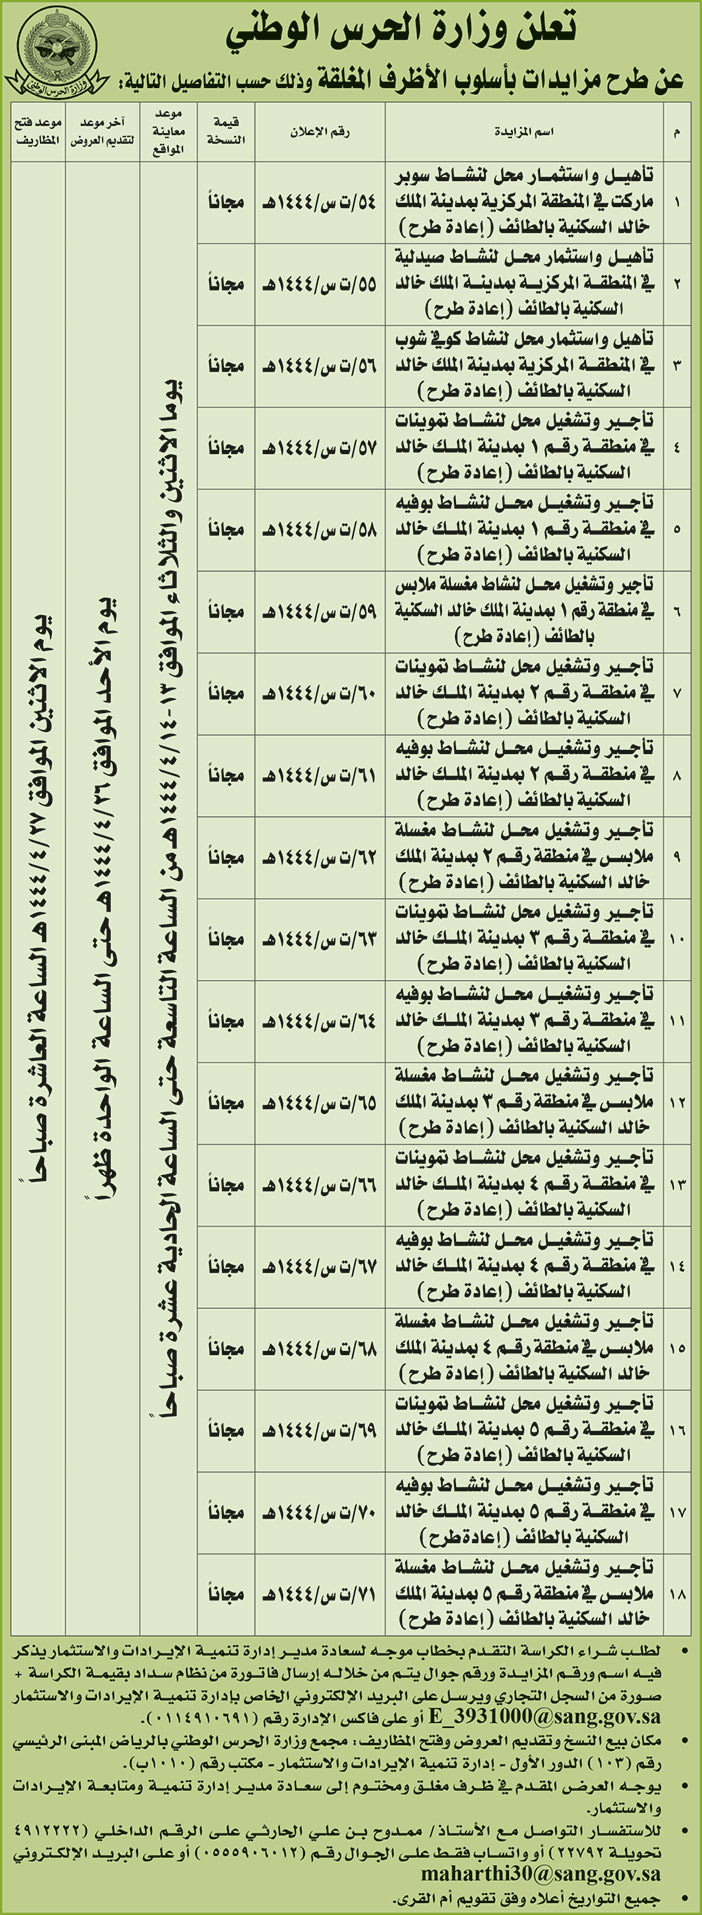 تعلن وزارة الحرس الوطني
وزارة الحرس الوطني
عن طرح مزايدات بأسلوب الأظرف المغلقة وذلك حسب التفاصيل التالية:
م
اسم المزايدة
رقم الإعلان
قيمة
النسخة
موعد
معاينة
المواقع
آخر موعد
لتقديم العروض
موعد فتح
المظاريف
١
تأهيل واستثمار محل لنشاط سوبر
ماركت في المنطقة المركزية بمدينة الملك
خالد السكنية بالطائف (إعادة طرح)
٥٤/ت س/١٤٤٤هـ
مجاناً
٢
تأهيل واستثمار محل لنشاط صيدلية
في المنطقة المركزية بمدينة الملك خالد
السكنية بالطائف (إعادة طرح)
٥٥/ت س/١٤٤٤هـ
مجاناً
٣
تأهيل واستثمار محل لنشاط كوفي شوب
في المنطقة المركزية بمدينة الملك خالد
السكنية بالطائف (إعادة طرح)
٥٦/ت س/١٤٤٤هـ
مجاناً
٤
تأجير وتشغيل محل لنشاط تموينات
في منطقة رقم ١ بمدينة الملك خالد
السكنية بالطائف (إعادة طرح)
٥٧/ت س/١٤٤٤هـ
مجاناً
٥
تأجير وتشغيل محل لنشاط بوفيه
في منطقة رقم ١ بمدينة الملك خالد
السكنية بالطائف (إعادة طرح)
٥٨/ت س/١٤٤٤هـ
مجاناً
٦
تأجير وتشغيل محل لنشاط مغسلة ملابس
في منطقة رقم ١ بمدينة الملك خالد السكنية
بالطائف (إعادة طرح)
٥٩/ت س/١٤٤٤هـ
مجاناً
٧
تأجير وتشغيل محل لنشاط تموينات
في منطقة رقم ٢ بمدينة الملك خالد
السكنية بالطائف (إعادة طرح)
٦٠/ت س/١٤٤٤هـ
مجاناً
٨
تأجير وتشغيل محل لنشاط بوفيه
في منطقة رقم ٢ بمدينة الملك خالد
السكنية بالطائف (إعادة طرح)
٦١/ت س/١٤٤٤هـ
مجاناً
٩
تأجير وتشغيل محل لنشاط مغسلة
ملابس في منطقة رقم ٢ بمدينة الملك
خالد السكنية بالطائف (إعادة طرح)
٦٢/ت س/١٤٤٤هـ
مجاناً
١٠
تأجير وتشغيل محل لنشاط تموينات
في منطقة رقم ٣ بمدينة الملك خالد
السكنية بالطائف (إعادة طرح)
٦٣/ت س/١٤٤٤هـ
مجاناً
١١
تأجير وتشغيل محل لنشاط بوفيه
في منطقة رقم ٣ بمدينة الملك خالد
السكنية بالطائف (إعادة طرح)
٦٤/ت س/١٤٤٤هـ
مجاناً
١٢
تأجير وتشغيل محل لنشاط مغسلة
ملابس في منطقة رقم ٣ بمدينة الملك
خالد السكنية بالطائف (إعادة طرح)
٦٥/ت س/١٤٤٤هـ
مجاناً
١٣
تأجير وتشغيل محل لنشاط تموينات
في منطقة رقم ٤ بمدينة الملك خالد
السكنية بالطائف (إعادة طرح)
٦٦/ت س/١٤٤٤هـ
مجاناً
١٤
تأجير وتشغيل محل لنشاط بوفيه
في منطقة رقم ٤ بمدينة الملك خالد
السكنية بالطائف (إعادة طرح)
٦٧/ت س/١٤٤٤هـ
مجاناً
١٥
تأجير وتشغيل محل لنشاط مغسلة
ملابس في منطقة رقم ٤ بمدينة الملك
خالد السكنية بالطائف (إعادة طرح)
٦٨/ت س/١٤٤٤هـ
مجاناً
١٦
تأجير وتشغيل محل لنشاط تموينات
في منطقة رقم ٥ بمدينة الملك خالد
السكنية بالطائف (إعادة طرح)
٦٩/ت س/١٤٤٤هـ
مجاناً
١٧
تأجير وتشغيل محل لنشاط بوفيه
في منطقة رقم ٥ بمدينة الملك خالد
السكنية بالطائف (إعادة طرح)
٧٠/ت س/١٤٤٤هـ
مجاناً
١٨
تأجير وتشغيل محل لنشاط مغسلة
ملابس في منطقة رقم ٥ بمدينة الملك
خالد السكنية بالطائف (إعادة طرح)
٧١/ت س/١٤٤٤هـ
مجاناً
يوما الاثنين والثلاثاء الموافق ١٣-١٤٤٤/٤/١٤هـ من الساعة التاسعة حتى الساعة الحادية عشرة صباحاً
يوم الأحد الموافق ١٤٤٤/٤/٢٦هـ حتى الساعة الواحدة ظهراً
يوم الاثنين الموافق ١٤٤٤/٤/٢٧هـ الساعة العاشرة صباحاً
• لطلب شراء الكراسة التقدم بخطاب موجه لسعادة مدير إدارة تنمية الإيرادات والاستثمار يذكر
فيه اسم ورقم المزايدة ورقم جوال يتم من خلاله إرسال فاتورة من نظام سداد بقيمة الكراسة +
صورة من السجل التجاري ويرسل على البريد الإلكتروني الخاص بإدارة تنمية الإيرادات والاستثمار
E_3931000@sang.gov.sa أو على فاكس الإدارة رقم (٠١١٤٩١٠٦٩١).
• مكان بيع النسخ وتقديم العروض وفتح المظاريف: مجمع وزارة الحرس الوطني بالرياض المبنى الرئيسي
رقم (١٠٣) الدور الأول - إدارة تنمية الإيرادات والاستثمار - مكتب رقم (١٠١٠ب).
• يوجه العرض المقدم في ظرف مغلق ومختوم إلى سعادة مدير إدارة تنمية ومتابعة الإيرادات
والاستثمار.
• للاستفسار التواصل مع الأستاذ/ ممدوح بن علي الحارثي على الرقم الداخلي (٤٩١٢٢٢٢
تحويلة ٢٢٧٩٢) أو واتساب فقط على الجوال رقم (٠٥٥٥٩٠٦٠١٢) أو على البريد الإلكتروني
maharthi30@sang.gov.sa
• جميع التواريخ أعلاه وفق تقويم أم القرى.